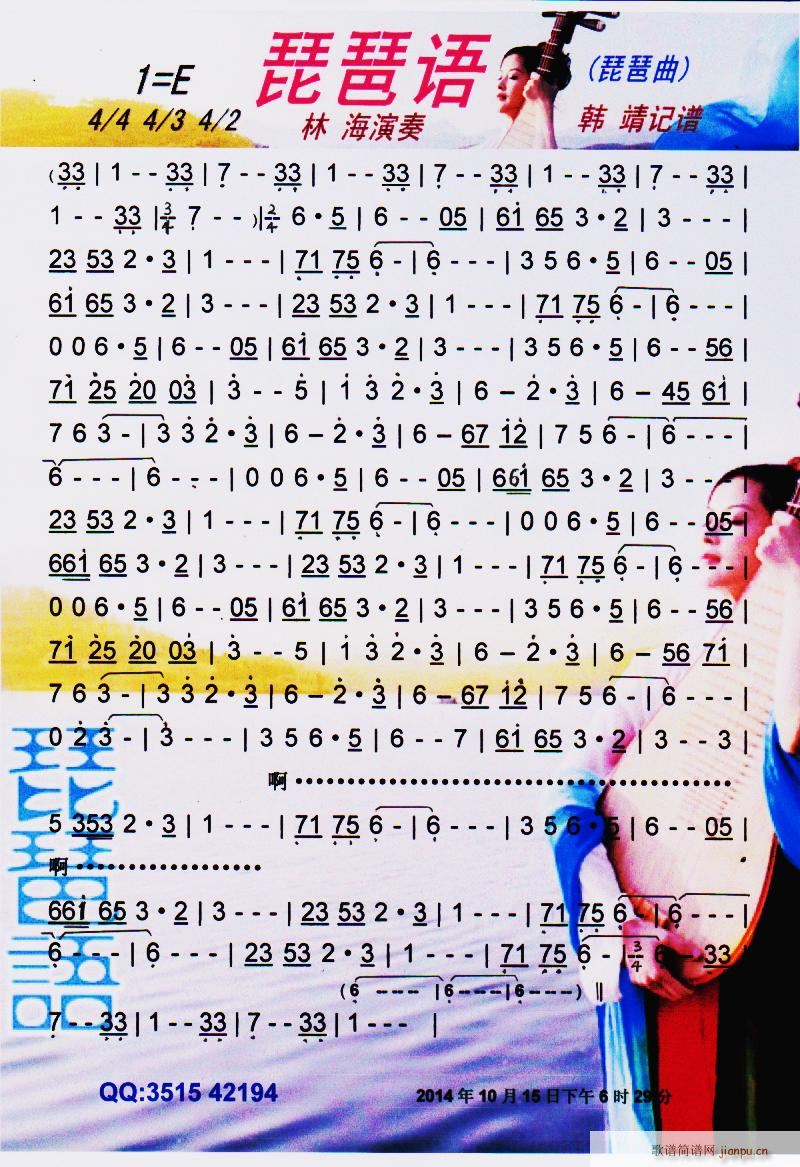 琵琶语
(琵琶曲)
1=E
4/4 4/3 4/2
林 海演奏
韩 靖记谱
(33 | 1 - - 33 | 7 - - 33 | 1 - - 33 | 7 - - 33 | 1 - - 33 | 7 - - 33 |
1 - - 33 | 3/4 7 - - )| 2/4 6 · 5 | 6 - - 05 | 61 65 3 · 2 | 3 - - - |
23 53 2 · 3 | 1 - - - | 71 75 6 - | 6 - - - | 3 5 6 · 5 | 6 - - 05 |
61 65 3 · 2 | 3 - - - | 23 53 2 · 3 | 1 - - - | 71 75 6 - | 6 - - - |
0 0 6 · 5 | 6 - - 05 | 61 65 3 · 2 | 3 - - - | 3 5 6 · 5 | 6 - - 56 |
71 25 20 03 | 3 - - 5 | 1 3 2 · 3 | 6 – 2 · 3 | 6 – 2 · 3 | 6 – 45 61 |
7 6 3 - | 3 3 2 · 3 | 6 – 2 · 3 | 6 – 67 12 | 7 5 6 - | 6 - - - |
6 - - - | 6 - - - | 0 0 6 · 5 | 6 - - 05 | 661 65 3 · 2 | 3 - - - |
23 53 2 · 3 | 1 - - - | 71 75 6 - | 6 - - - | 0 0 6 · 5 | 6 - - 05 |
661 65 3 · 2 | 3 - - - | 23 53 2 · 3 | 1 - - - | 71 75 6 - | 6 - - - |
0 0 6 · 5 | 6 - - 05 | 61 65 3 · 2 | 3 - - - | 3 5 6 · 5 | 6 - - 56 |
71 25 20 03 | 3 - - 5 | 1 3 2 · 3 | 6 – 2 · 3 | 6 – 2 · 3 | 6 – 56 71 |
7 6 3 - | 3 3 2 · 3 | 6 – 2 · 3 | 6 – 67 12 | 7 5 6 - | 6 - - - |
0 2 3 - | 3 - - - | 3 5 6 · 5 | 6 - - 7 | 61 65 3 · 2 | 3 - - 3 |
啊·······································
5 353 2 · 3 | 1 - - - | 71 75 6 - | 6 - - - | 3 5 6 · 5 | 6 - - 05 |
啊·················
661 65 3 · 2 | 3 - - - | 23 53 2 · 3 | 1 - - - | 71 75 6 - | 6 - - - |
6 - - - | 6 - - - | 23 53 2 · 3 | 1 - - - | 71 75 6 - | 3/4 6 - - 33 |
(6 ---- | 6 ---- | 6 ---- ) ‖
7 - - 33 | 1 - - 33 | 7 - - 33 | 1 - - - |
QQ:3515 42194
2014 年 10 月 15 日下午 6 时 29 分
歌谱简谱网 jianpu.cn